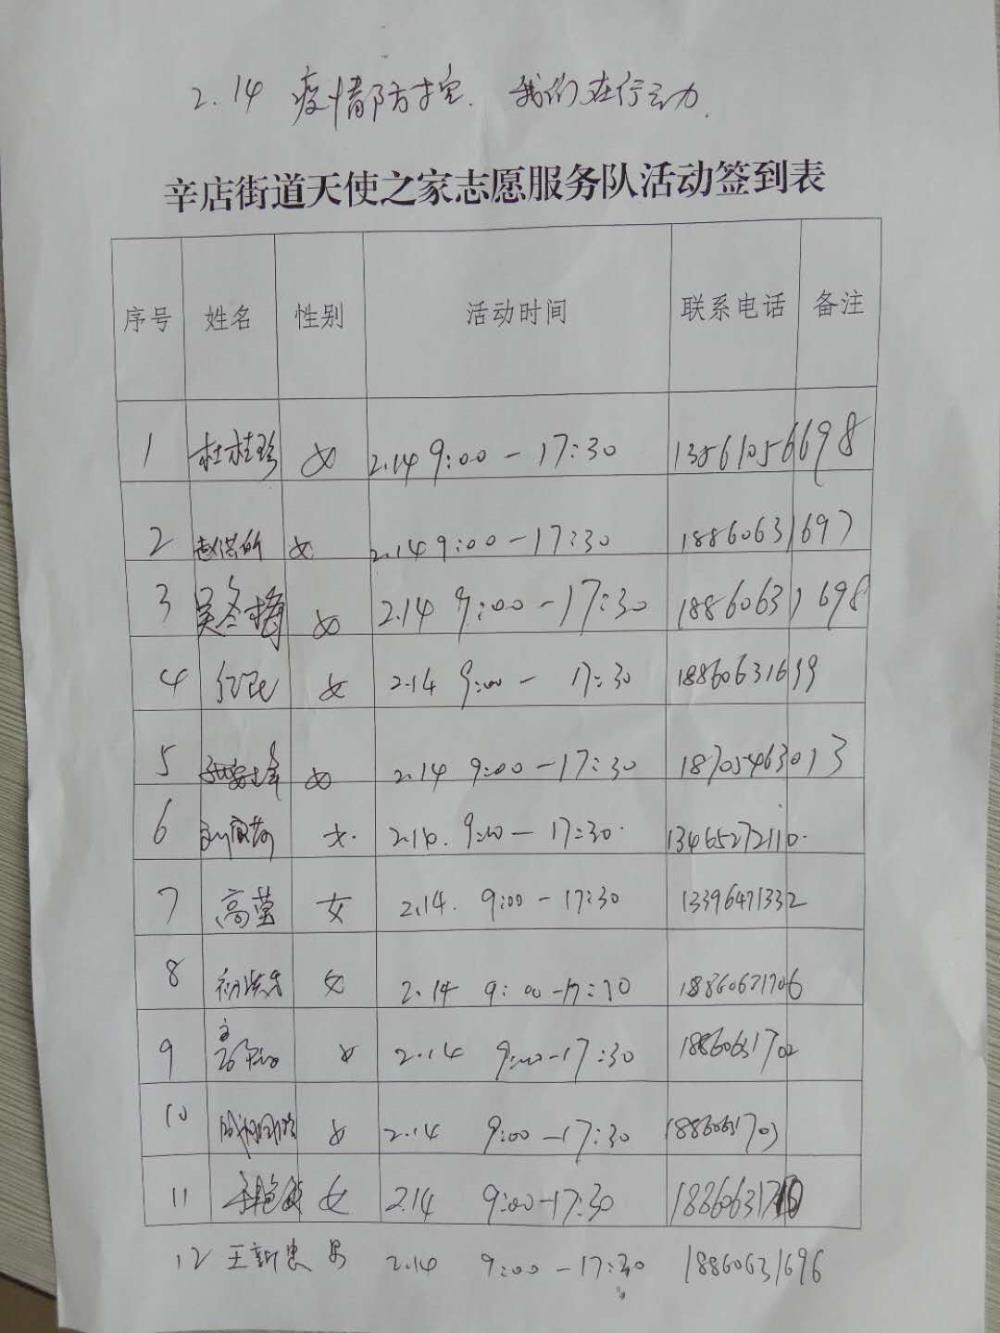 2.14 疫情防控. 我们在行动.
辛店街道天使之家志愿服务队活动签到表
序号 姓名 性别 活动时间 联系电话 备注
1 杜桂珍 女 2.14 9:00-17:30 13561056698
2 女 2.14 9:00-17:30 18860631697
3 吴冬梅 女 2.14 9:00-17:30 18860631698
4 女 2.14 9:00- 17:30 18860631699
5 女 2.14 9:00-17:30 18705463013
6 女. 2.14. 9:00-17:30. 13465272110.
7 高莹 女 2.14. 9:00-17:30 13396471332
8 女 2.14 9:00-17:30 18860631706
9 女 2.14 9:00-17:30 18860631702
10 女 2.14 9:00-17:30 18860631703
11 女 2.14 9:00-17:30
12 王新忠 男 2.14 9:00-17:30 18860631696